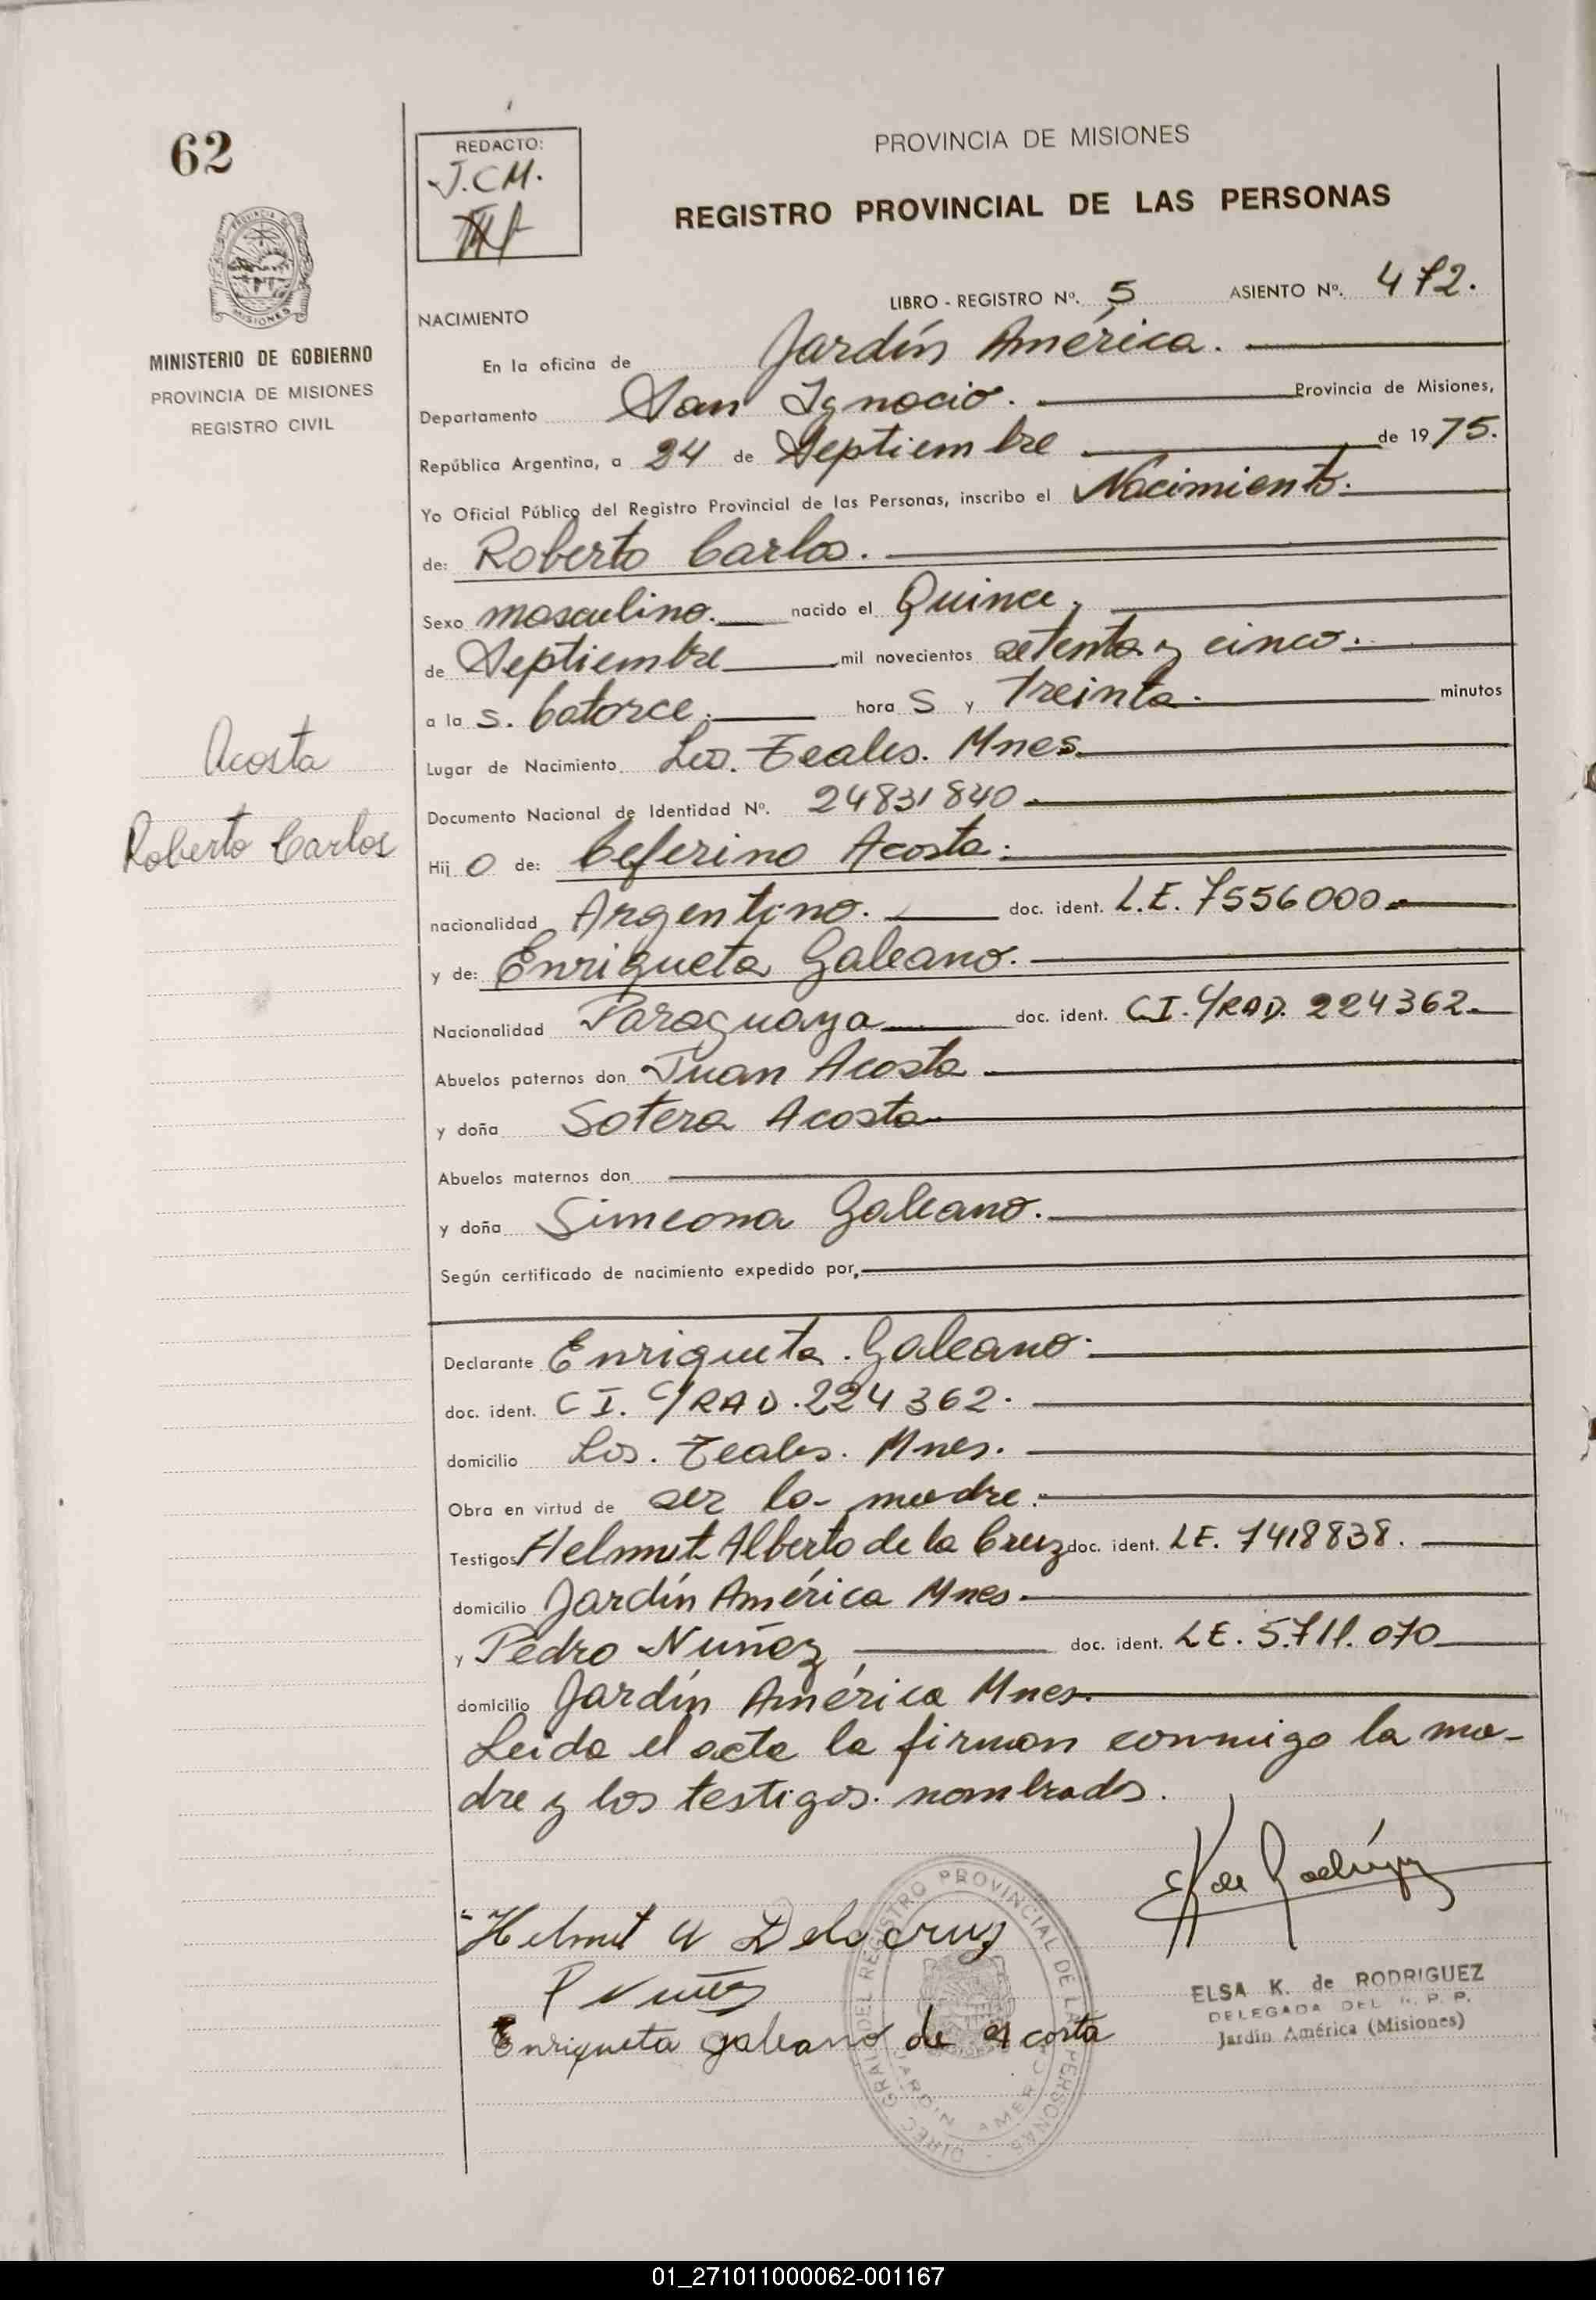 62
REDACTO:
J.C.M.
PROVINCIA DE MISIONES
REGISTRO PROVINCIAL DE LAS PERSONAS
LIBRO - REGISTRO Nº. 5 ASIENTO Nº. 472.
MINISTERIO DE GOBIERNO
PROVINCIA DE MISIONES
REGISTRO CIVIL
NACIMIENTO
En la oficina de Jardín América.
Departamento San Ignacio. Provincia de Misiones,
República Argentina, a 24 de Septiembre de 1975.
Yo Oficial Público del Registro Provincial de las Personas, inscribo el Nacimiento.
de: Roberto Carlos.
Sexo masculino. nacido el Quince.
de Septiembre mil novecientos setenta y cinco.
a la s. Catorce. hora s y Treinta. minutos
Acosta
Roberto Carlos
Lugar de Nacimiento Los. Teales. Mnes.
Documento Nacional de Identidad Nº. 24831840.
Hij o de: Ceferino Acosta.
nacionalidad Argentino. doc. ident. L.E. 7556000.
y de: Enriqueta Galeano.
Nacionalidad Paraguaya doc. ident. C.I. C/RAD. 224362.
Abuelos paternos don Juan Acosta
y doña Sotera Acosta
Abuelos maternos don
y doña Simeona Galeano.
Según certificado de nacimiento expedido por,
Declarante Enriqueta. Galeano.
doc. ident. C I. C/RAD. 224362.
domicilio Los. Teales. Mnes.
Obra en virtud de ser la madre.
Testigos Helmut Alberto de la Cruz doc. ident. LE. 7418838.
domicilio Jardín América Mnes.
y Pedro Nuñez doc. ident. LE. 5.711.070
domicilio Jardín América Mnes.
Leida el acta la firman conmigo la ma-
dre y los testigos. nombrados.
K de Rodríguez
Helmut A Delacruz
P Nuñez
Enriqueta galeano de Acosta
DIREC. GRAL. DEL REGISTRO PROVINCIAL DE LAS PERSONAS
JARDIN AMERICA
ELSA K. de RODRIGUEZ
DELEGADA DEL R. P. P.
Jardín América (Misiones)
01_271011000062-001167